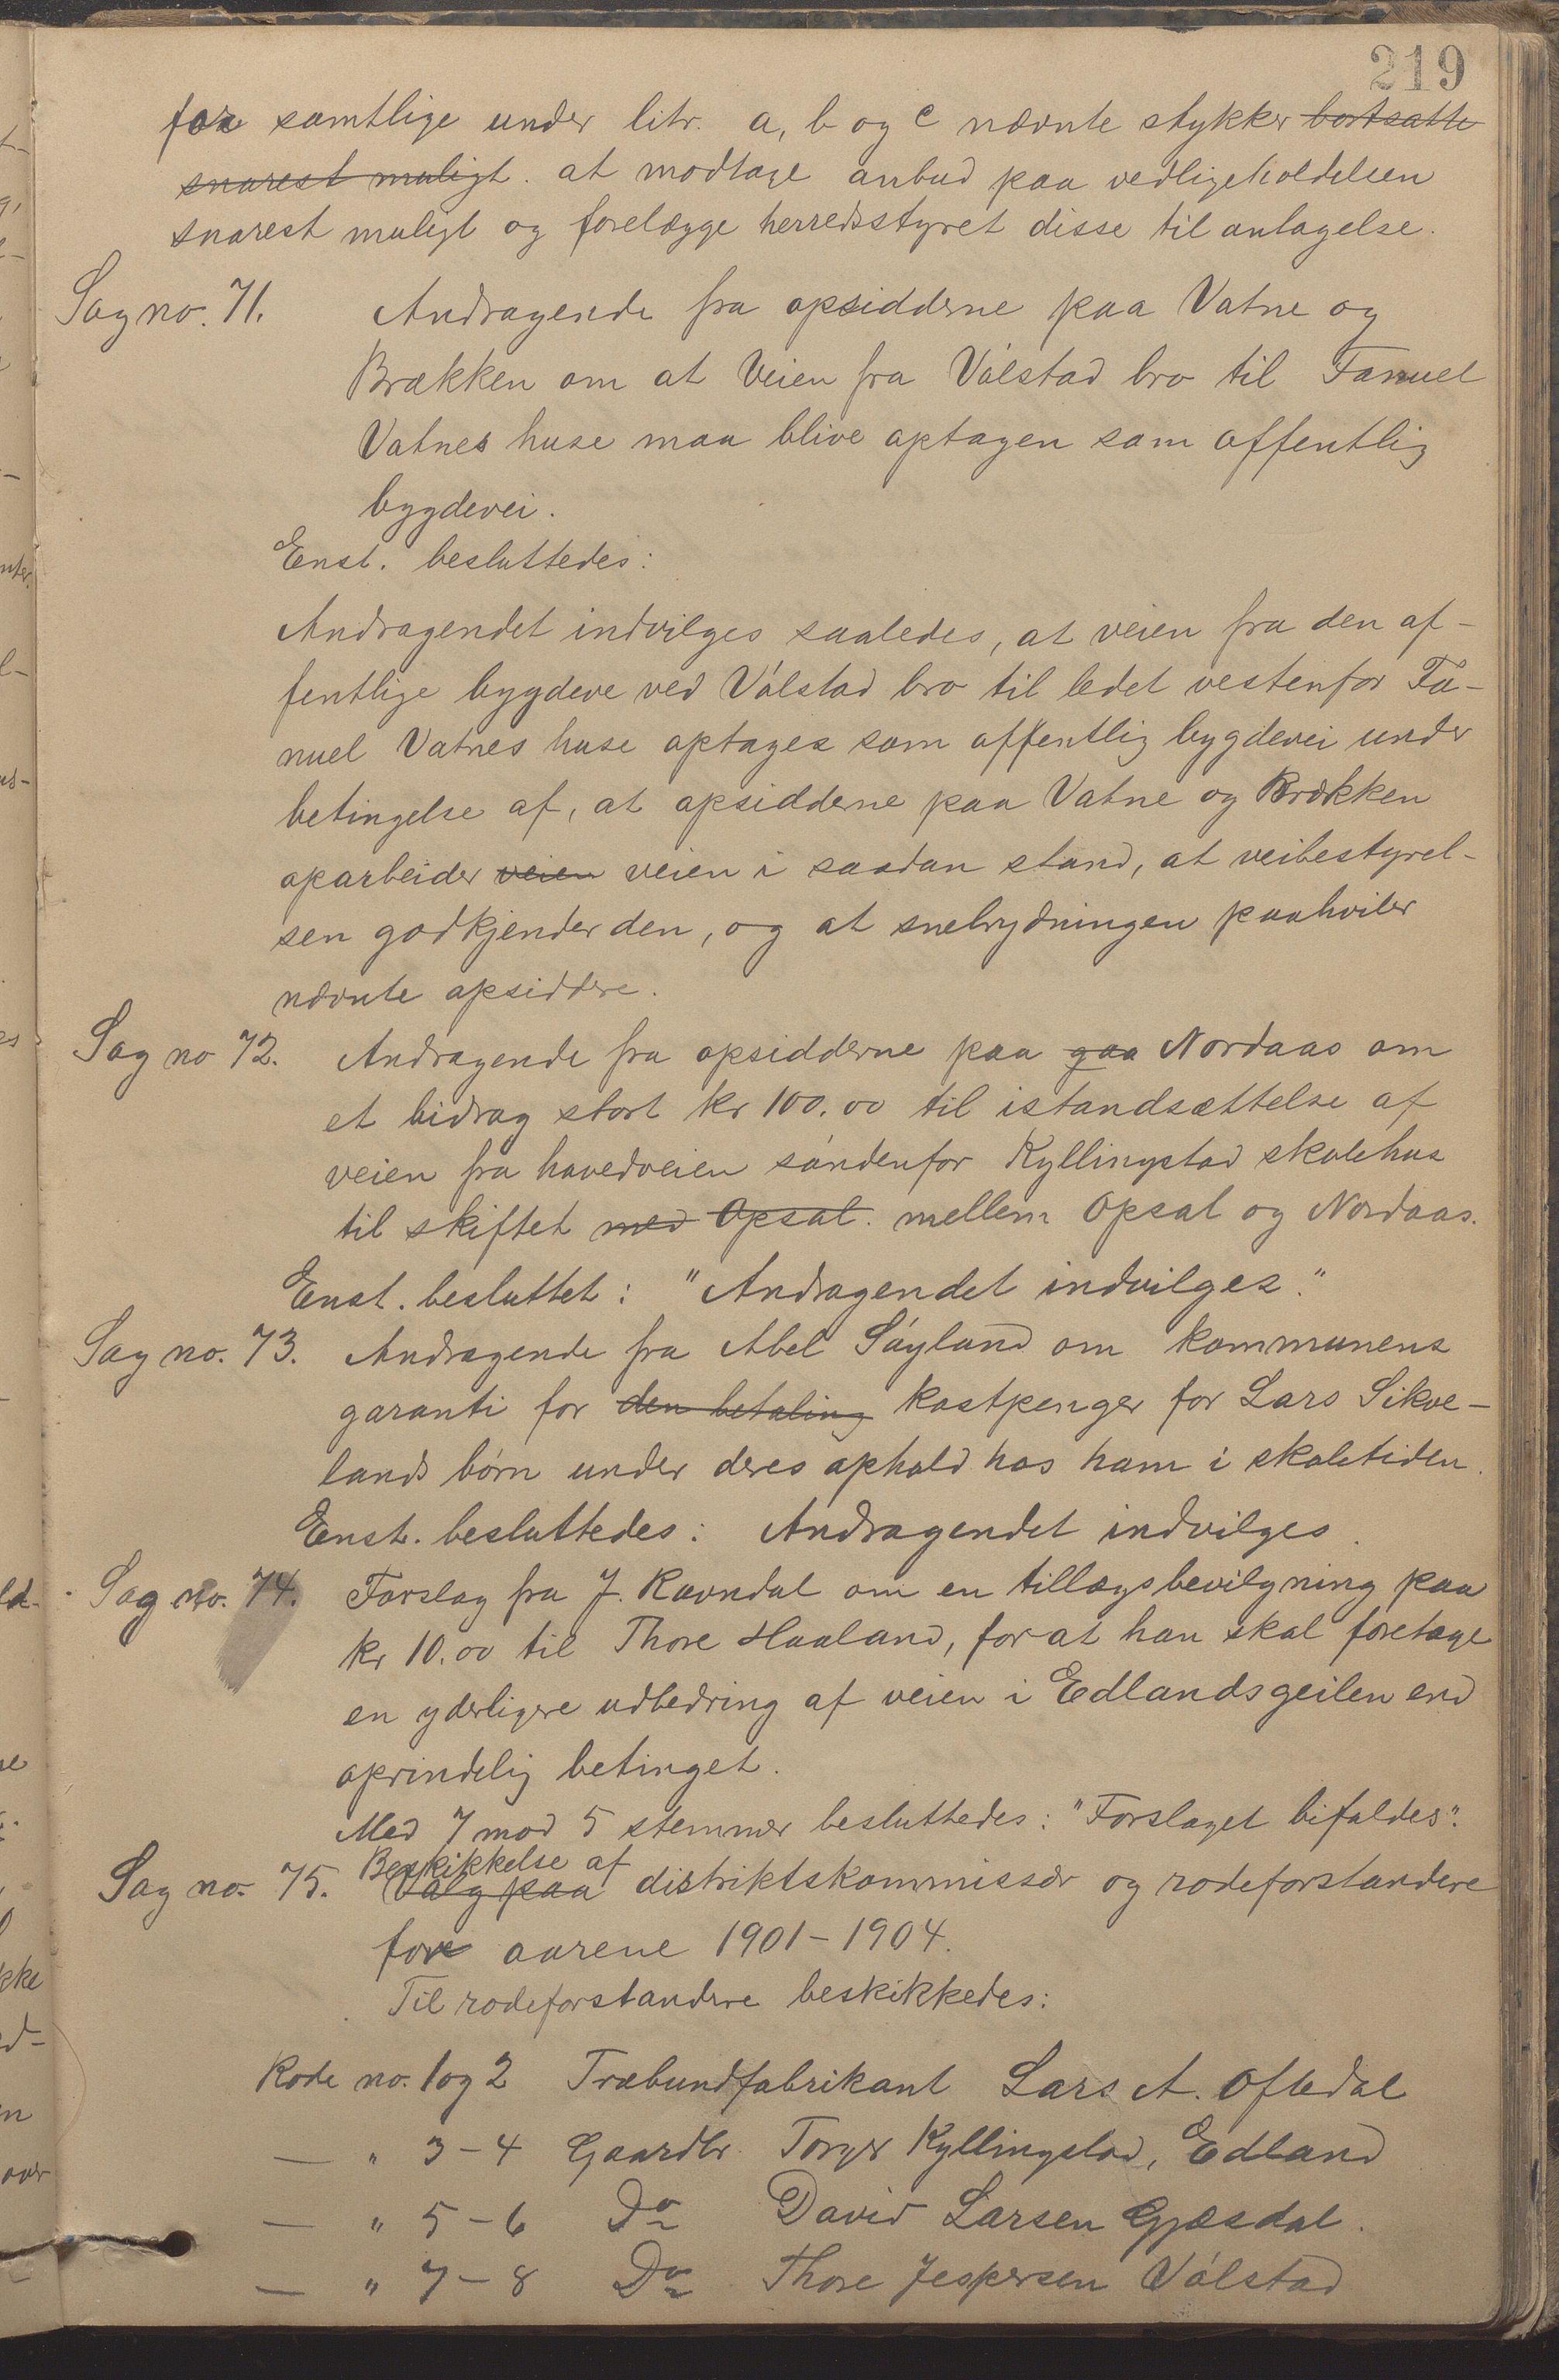 219
for samtlige under litr. a, b og c nævnte stykker bortsatte
snarest muligt. at modtage anbud paa vedligeholdelsen
snarest muligt og forelægge herredsstyret disse til antagelse.
Sag no. 71. Andragende fra opsidderne paa Vatne og
Brækken om at Veien fra Vólstad bro til Fanuel
Vatnes huse maa blive optagen som offentlig
bygdevei.
Enst. besluttedes:
Andragendet indvilges saaledes, at veien fra den of-
fentlige bygdeve ved Vólstad bro til ledet vestenfor Fa-
nuel Vatnes huse optages som offentlig bygdevei under
betingelse af, at opsidderne paa Vatne og Brækken
oparbeider veien veien i saadan stand, at veibestyrel-
sen godkjender den, og at snebrydningen paahviler
nævnte opsiddere.
Sag no 72. Andragende fra opsidderne paa paa Nordaas om
et bidrag stort kr 100.00 til istandsættelse af
veien fra hovedveien sóndenfor Kyllingstad skolehus
til skiftet med Opsal. mellem Opsal og Nordaas.
Enst. besluttet: "Andragendet indvilges."
Sag no. 73. Andragende fra Abel Sóyland om kommunens
garanti for den betaling kostpenger for Lars Sikve-
lands bórn under deres ophold hos ham i skoletiden.
Enst. besluttedes: Andragendet indvilges.
Sag no. 74. Forslag fra J. Ravndal om en tillægsbevilgning paa
kr 10.00 til Thore Haaland, for at han skal foretage
en yderligere udbedring af veien i Edlandsgeilen end
oprindelig betinget.
Med 7 mod 5 stemmer besluttedes: "Forslaget bifaldes".
Beskikkelse af
Sag no. 75. Valg paa distriktskommissær og rodeforstandere
for aarene 1901-1904.
Til rodeforstandere beskikkedes:
Rode no. 1 og 2 Træbundfabrikant Lars A. Oftedal
— " 3-4 Gaardbr. Torger Kyllingstad, Edland
— " 5-6 Do David Larsen Gjesdal.
— " 7-8 Do Thore Jespersen Vólstad